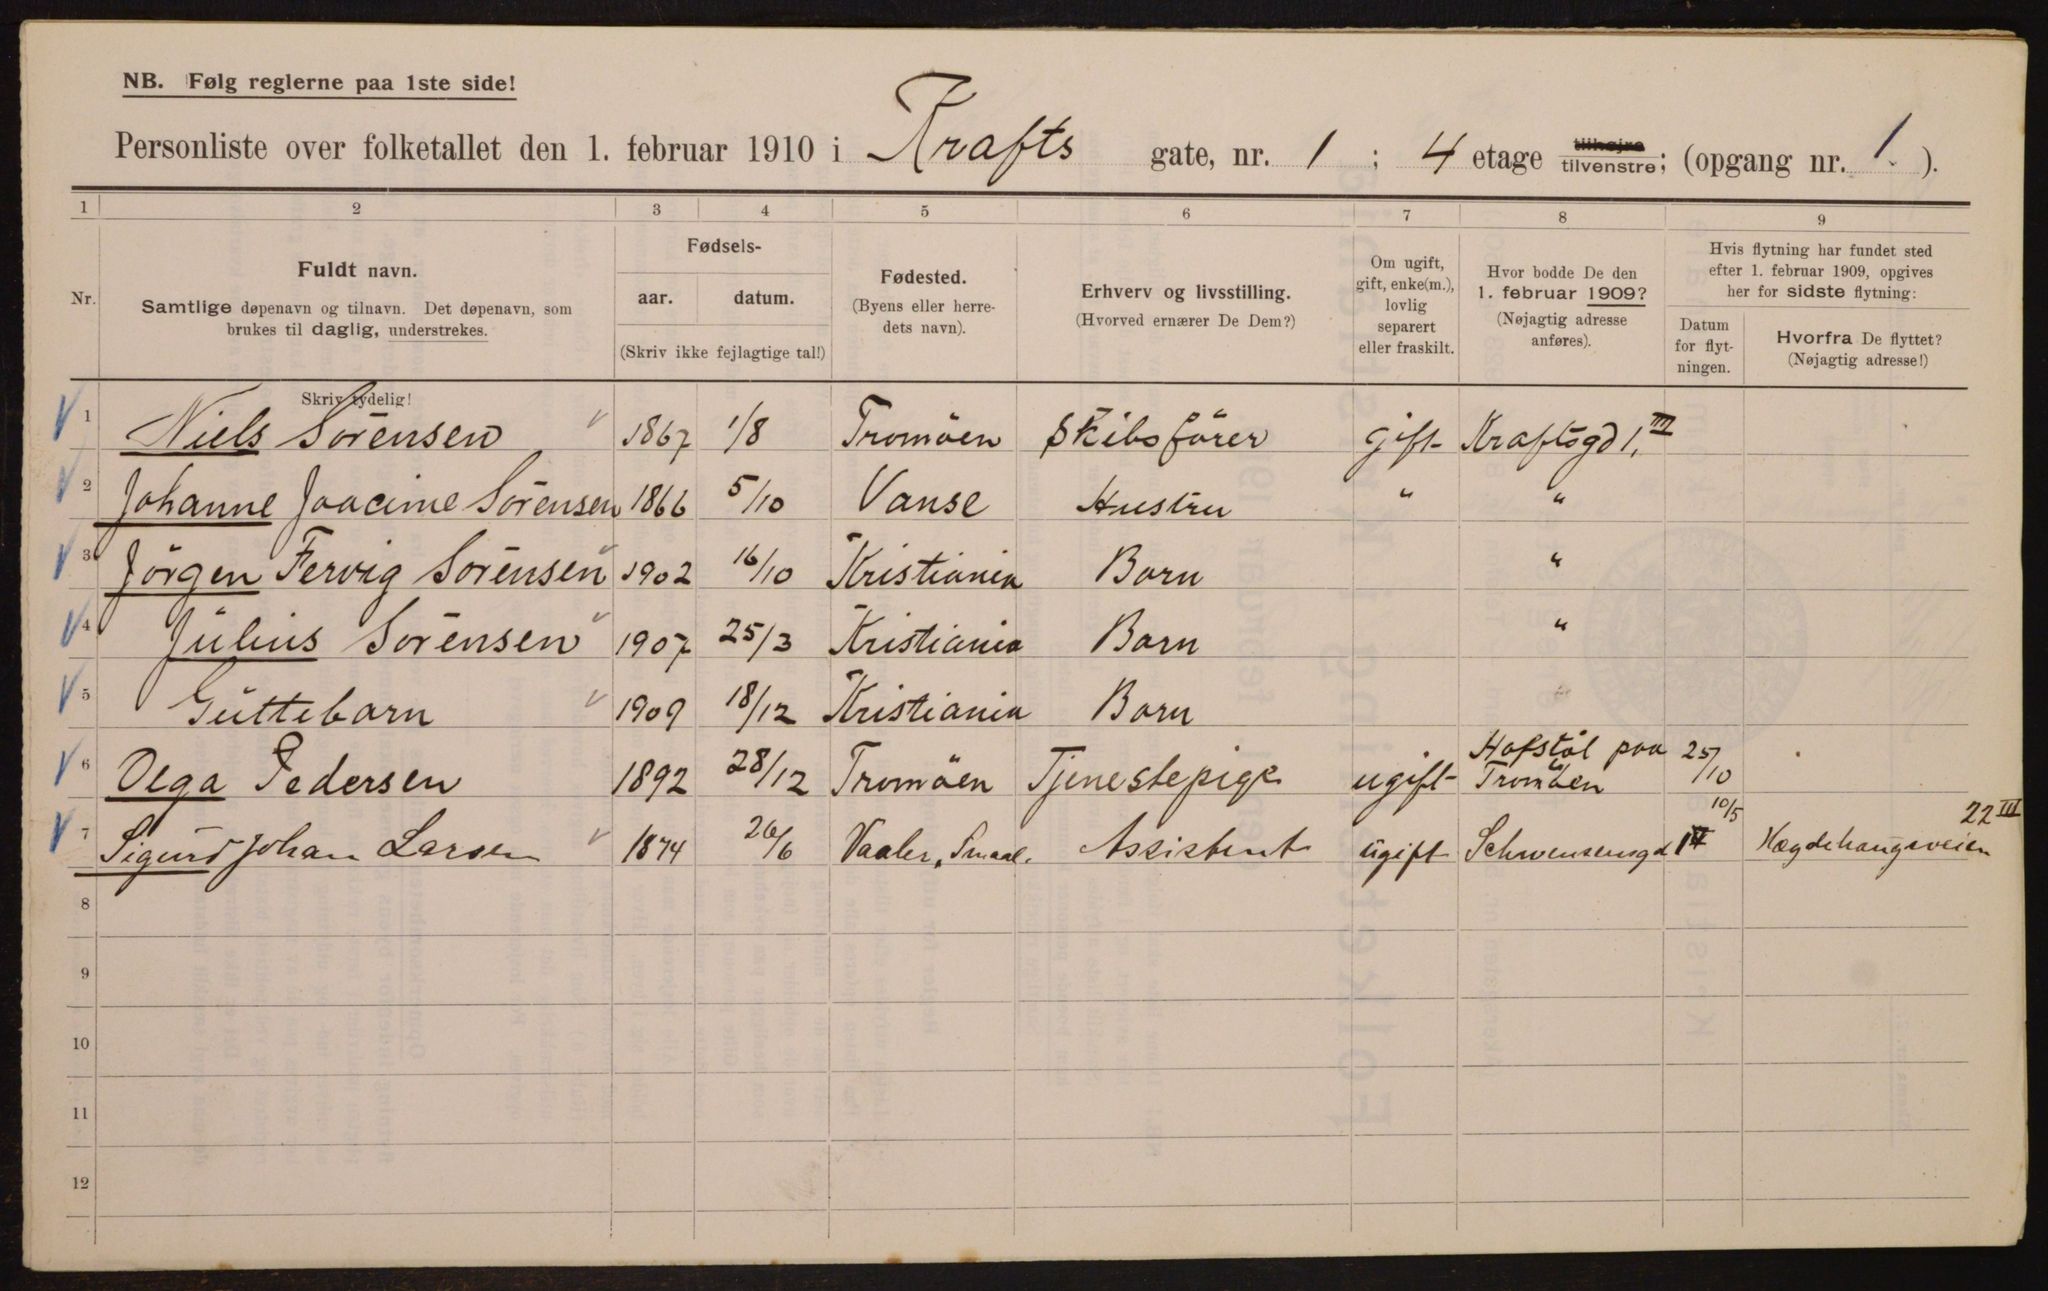 NB. Følg reglerne paa 1ste side!
Personliste over folketallet den 1. februar 1910 i Krafts gate, nr. 1; 4 etage tilhøjre tilvenstre; (opgang nr. 1.).
1 2 3 4 5 6 7 8 9
Nr.
Fuldt navn.
Samtlige døpenavn og tilnavn. Det døpenavn, som
brukes til daglig, understrekes.
Fødsels-
aar. datum.
(Skriv ikke fejlagtige tal!)
Fødested.
(Byens eller herre-
dets navn).
Erhverv og livsstilling.
(Hvorved ernærer De Dem?)
Om ugift,
gift, enke(m.),
lovlig
separert
eller fraskilt.
Hvor bodde De den
1. februar 1909?
(Nøjagtig adresse
anføres).
Hvis flytning har fundet sted
efter 1. februar 1909, opgives
her for sidste flytning:
Datum
for flyt-
ningen.
Hvorfra De flyttet?
(Nøjagtig adresse!)
Skriv tydelig!
1 Niels Sörensen 1867 1/8 Tromöen Skibsförer gift Kraftsgd 1, III
2 Johanne Joacime Sörensen 1866 5/10 Vanse Hustru " "
3 Jörgen Fervig Sörensen 1902 16/10 Kristiania Barn "
4 Julius Sörensen 1907 25/3 Kristiania Barn "
5 Guttebarn 1909 18/12 Kristiania Barn
6 Olga Pedersen 1892 28/12 Tromöen Tjenestepige ugift Hofstöl paa Tromöen 25/10
7 Sigurd Johan Larsen 1874 26/6 Vaaler, Smaal. Assistent ugift Schwensensgd 1 IV 10/5 Hægdehaugsveien 22 III
8
9
10
11
12